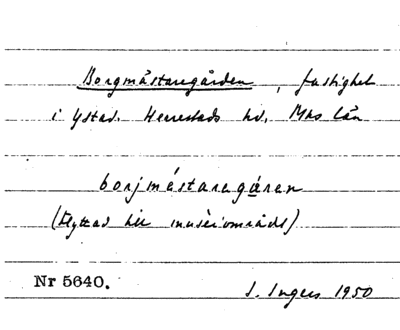 Borgmästaregården, fastighet
i Ystad. Herrestads hd. Mhs län
borjmástaregáren
(flyttad till museiområde)
Nr 5640.
I. Ingers 1950